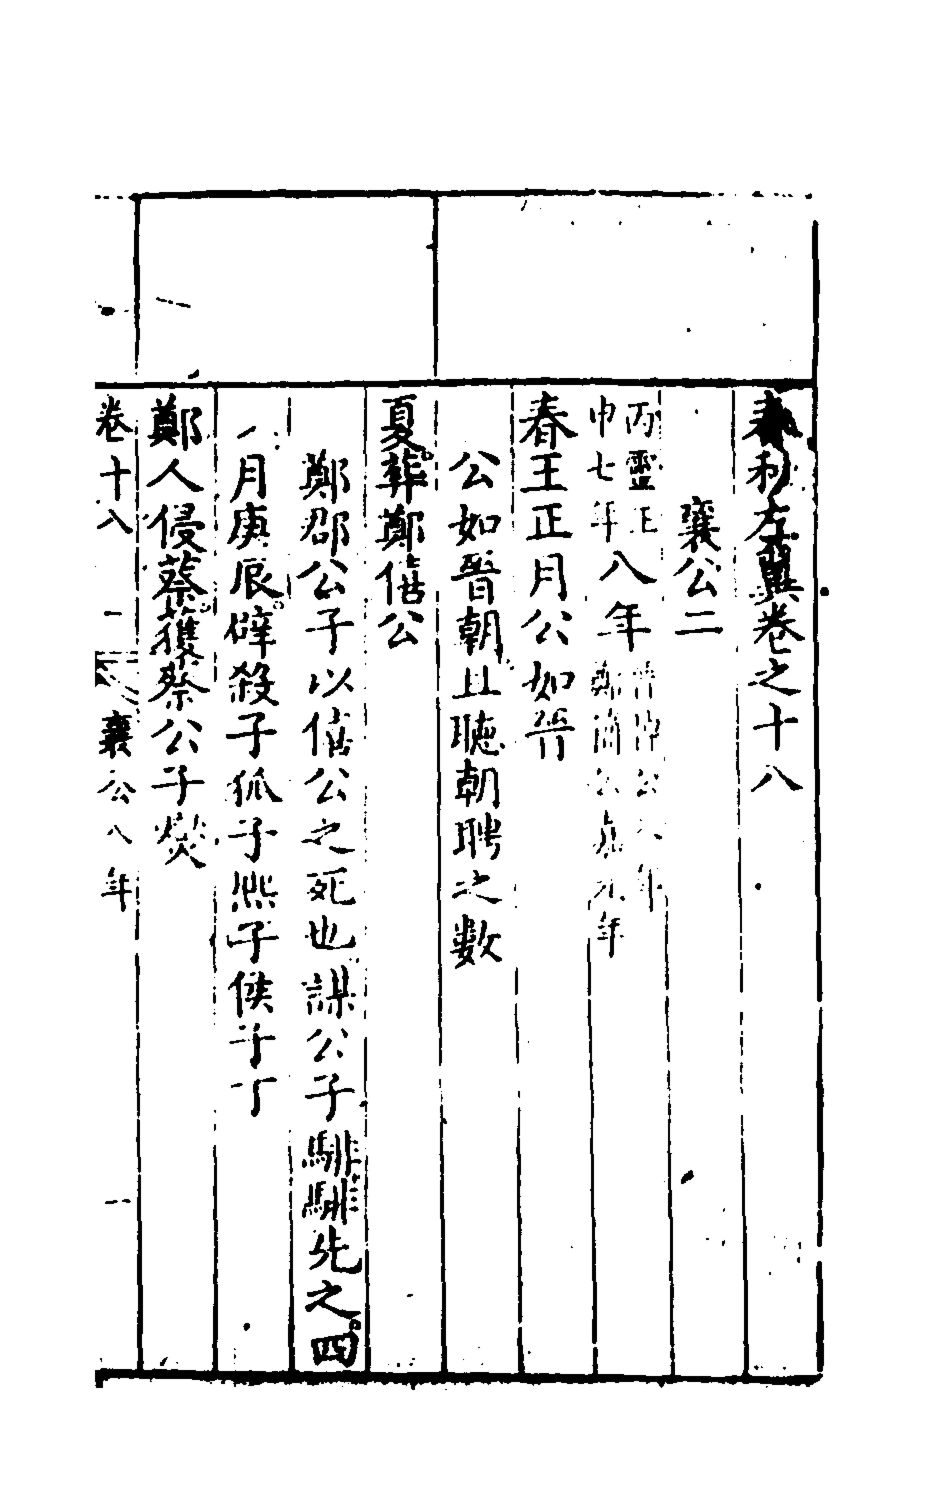 春秋左翼卷之十八
襄公二
丙靈王
申七年
八年
晉悼公八年
鄭簡公嘉元年
春王正月公如晉
公如晉朝且聽朝聘之數
夏葬鄭僖公
鄭群公子以僖公之死也謀公子騑騑先之四
月庚辰辟殺子狐子熙子侯子丁
鄭人侵蔡獲蔡公子燮
卷十八 一 襄公八年 一